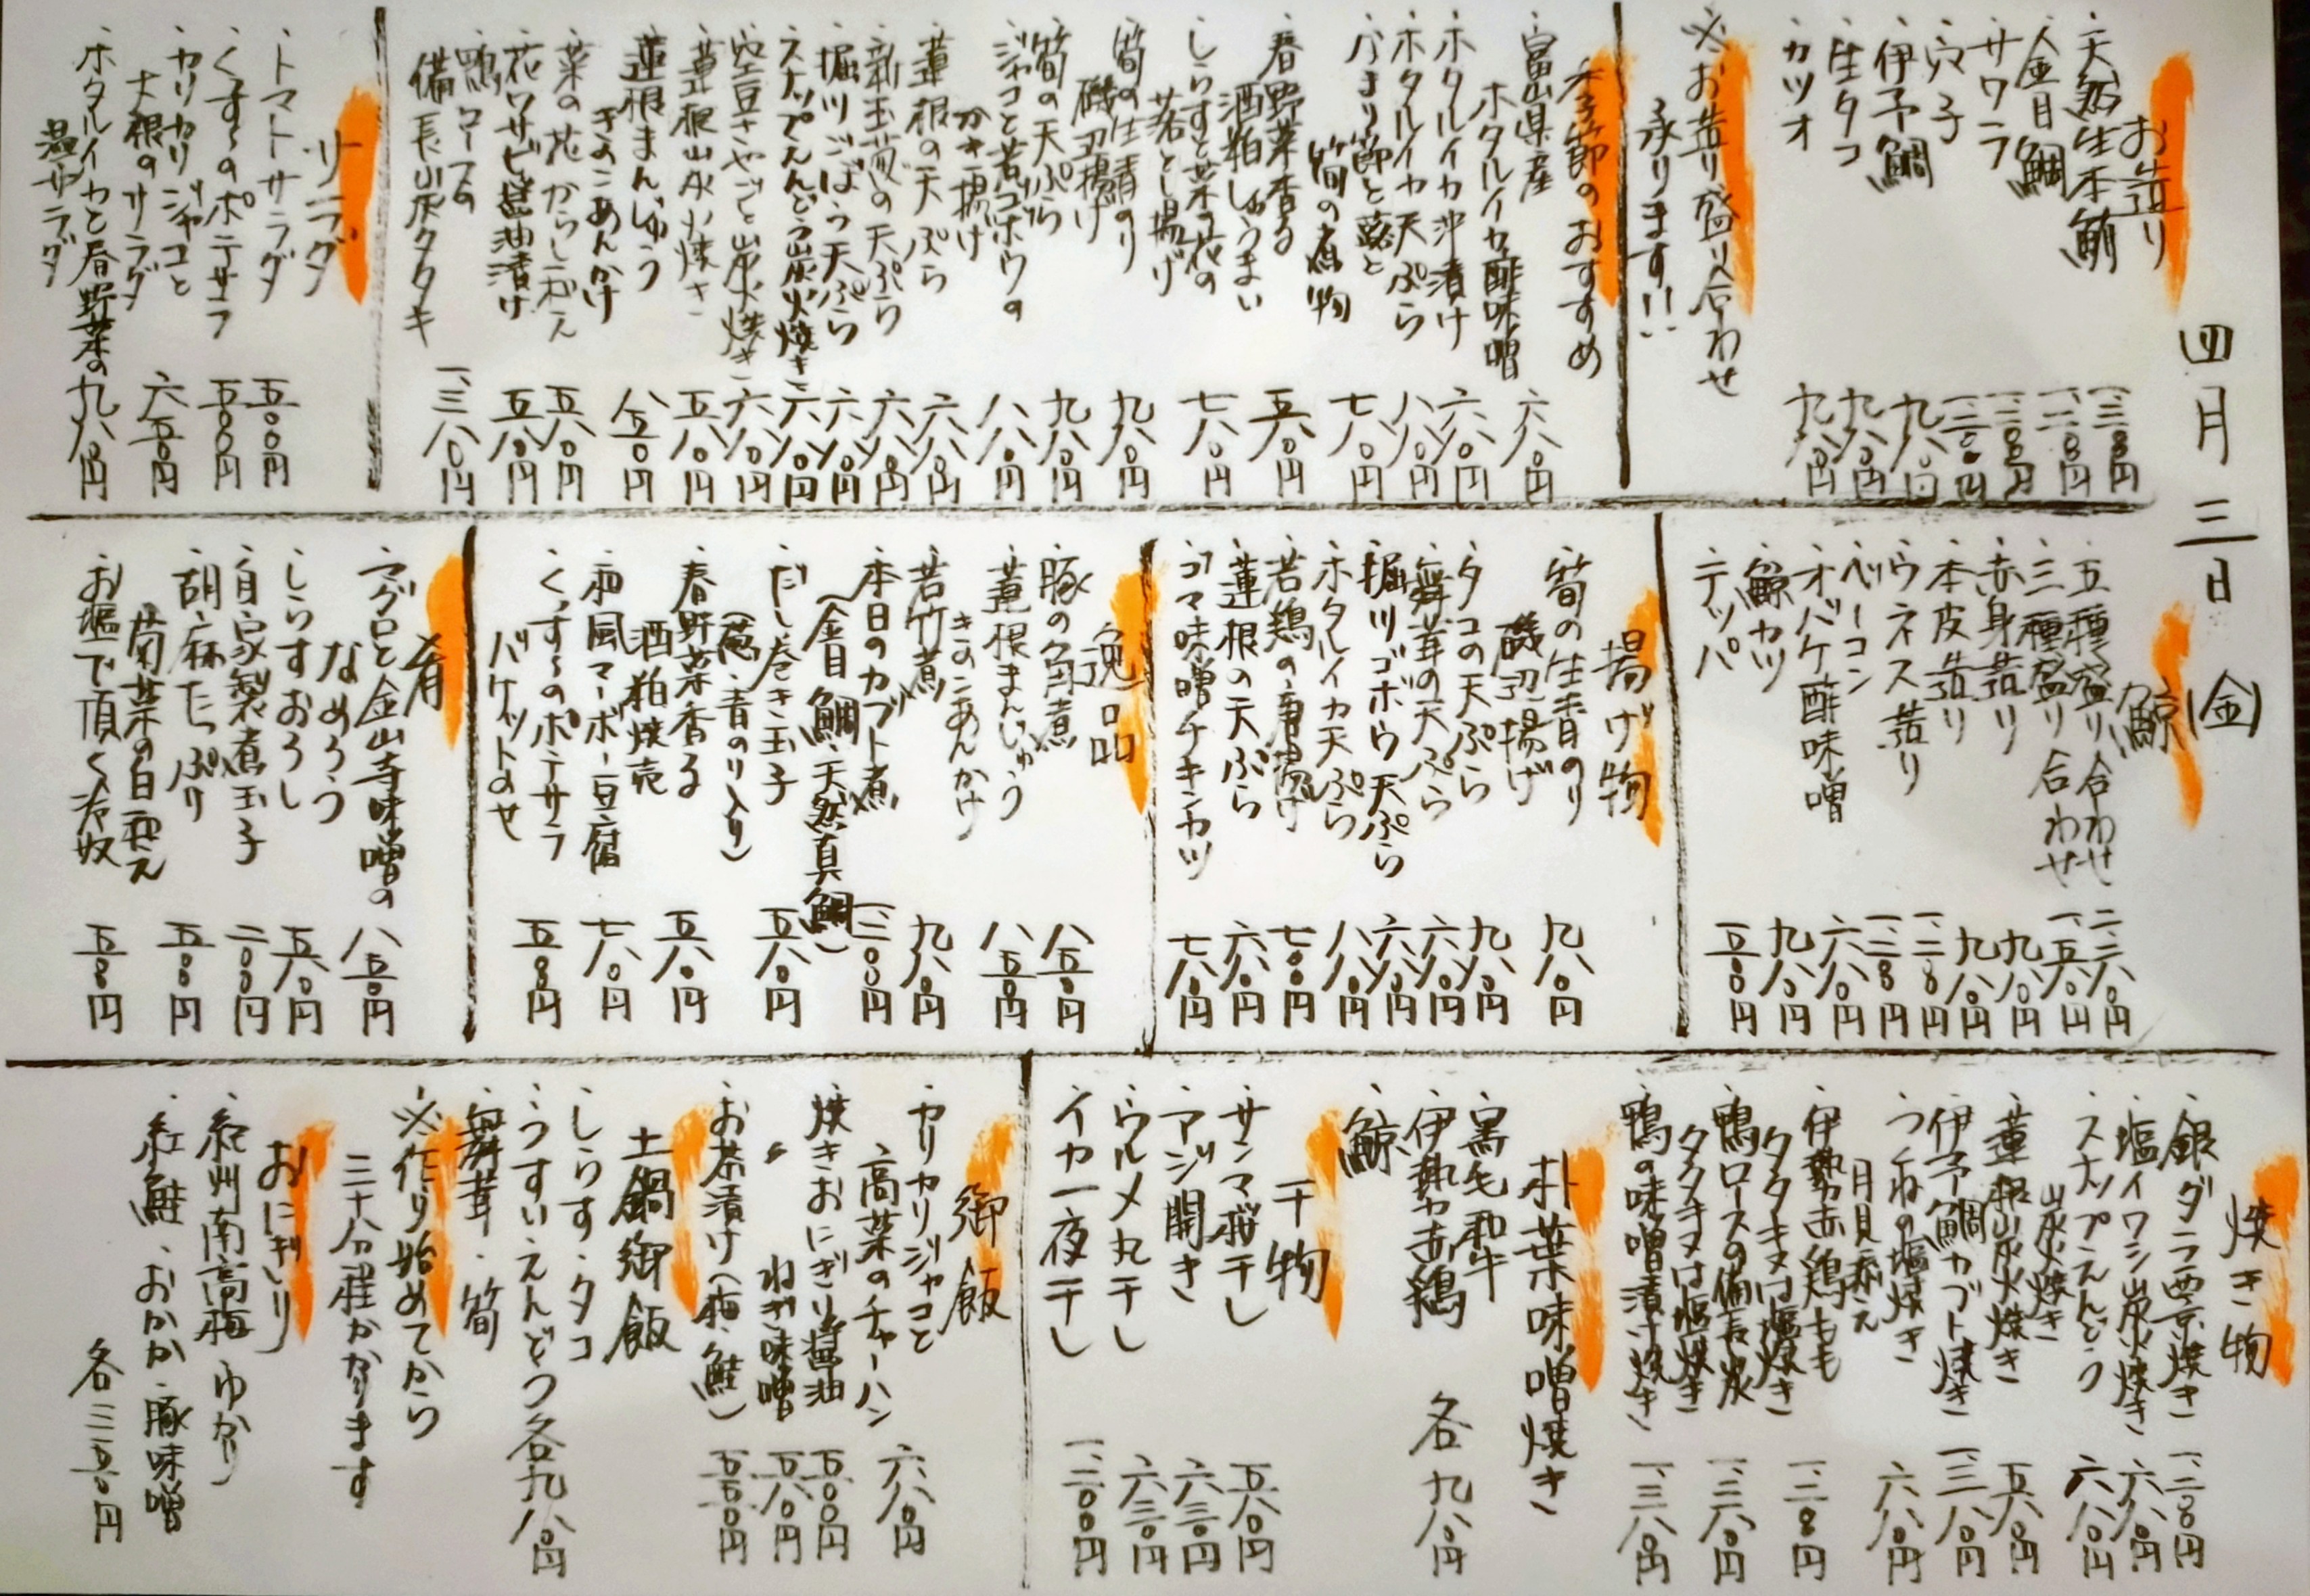 四月三日(金)
お造り
・天然生本鮪 一、三〇〇円
・金目鯛 一、二〇〇円
・サワラ
・穴子
・伊予鯛 九八〇円
・生タコ 九八〇円
・カツオ 九八〇円
※お造り盛り合わせ
承ります!!
季節のおすすめ
・富山県産
ホタルイカ酢味噌 六八〇円
・ホタルイカ沖漬け 六八〇円
・ホタルイカ天ぷら 八八〇円
・なまり節と蕗と
筍の煮物 七八〇円
・春野菜香る
酒粕しゅうまい 五八〇円
・しらすと菜の花の
落とし揚げ 七八〇円
・筍の生青のり
磯辺揚げ 九八〇円
・筍の天ぷら 九八〇円
・ジャコと若ゴボウの
かき揚げ 八八〇円
・蓮根の天ぷら 六八〇円
・新玉葱の天ぷら 六八〇円
・堀川ごぼう天ぷら 六八〇円
・スナップえんどう炭火焼き 六八〇円
・空豆さやごと炭火焼き 六八〇円
・蓮根炭火焼き 五八〇円
・蓮根まんじゅう
きのこあんかけ 八五〇円
・菜の花からし和え 五八〇円
・花ワサビ醤油漬け 五八〇円
・鴨ロースの
備長炭タタキ 一、三八〇円
サラダ
・トマトサラダ 五〇〇円
・くずし〜のポテサラ 五〇〇円
・カリカリジャコと
大根のサラダ 六五〇円
・ホタルイカと春野菜の
温サラダ 九八〇円
鯨
・五種盛り合わせ 二、二八〇円
・三種盛り合わせ 一、五八〇円
・赤身造り 九八〇円
・本皮造り 九八〇円
・ウネス造り 一、二八〇円
・ベーコン 一、二八〇円
・オバケ酢味噌 六八〇円
・鯨カツ 九八〇円
・テッパ 五〇〇円
揚げ物
・筍の生青のり
磯辺揚げ 九八〇円
・タコの天ぷら 九八〇円
・舞茸の天ぷら 六八〇円
・堀川ゴボウ天ぷら 六八〇円
・ホタルイカ天ぷら 八八〇円
・若鶏の唐揚げ 七〇〇円
・蓮根の天ぷら 六八〇円
・ゴマ味噌チキンカツ 七八〇円
逸品
・豚の角煮 八五〇円
・蓮根まんじゅう
きのこあんかけ 八五〇円
・若竹煮 九八〇円
・本日のカブト煮
(金目鯛・天然真鯛) 一、三〇〇円
・だし巻き玉子
(葱・青のり入り) 五八〇円
・春野菜香る
酒粕焼売 五八〇円
・和風マーボー豆腐 七八〇円
・くずし〜のポテサラ
バゲットのせ 五五〇円
肴
・マグロと金山寺味噌の
なめろう 八五〇円
・しらすおろし 五八〇円
・自家製煮玉子 二〇〇円
・胡麻たっぷり
菊菜の白和え 五五〇円
・お塩で頂く冷奴 五五〇円
焼き物
・銀ダラ西京焼き 一、二〇〇円
・塩イワシ炭火焼き 六八〇円
・スナップえんどう
炭火焼き 六八〇円
・蓮根炭火焼き 五八〇円
・伊予鯛カブト焼き 一、三八〇円
・つくねの塩焼き
月見添え 六八〇円
・伊勢赤鶏もも
タタキ又は塩焼き
・鴨ロースの備長炭
タタキ又は塩焼き 一、三八〇円
・鴨の味噌漬け焼き 一、三八〇円
朴葉味噌焼き
・黒毛和牛
・伊勢赤鶏 各九八〇円
・鯨
干物
・サンマ桜干し 五八〇円
・アジ開き 六三〇円
・ウルメ丸干し 六三〇円
・イカ一夜干し 一、二〇〇円
御飯
・カリカリジャコと
高菜のチャーハン 六八〇円
・焼きおにぎり醤油 五〇〇円
・〃 ねぎ味噌 五八〇円
・お茶漬け(梅・鮭) 五五〇円
土鍋御飯
・しらす・タコ
・うすいえんどう 各九八〇円
・舞茸・筍
※作り始めてから
三十分程かかります
おにぎり
・紀州南高梅・ゆかり
・紅鮭・おかか・豚味噌
各三五〇円